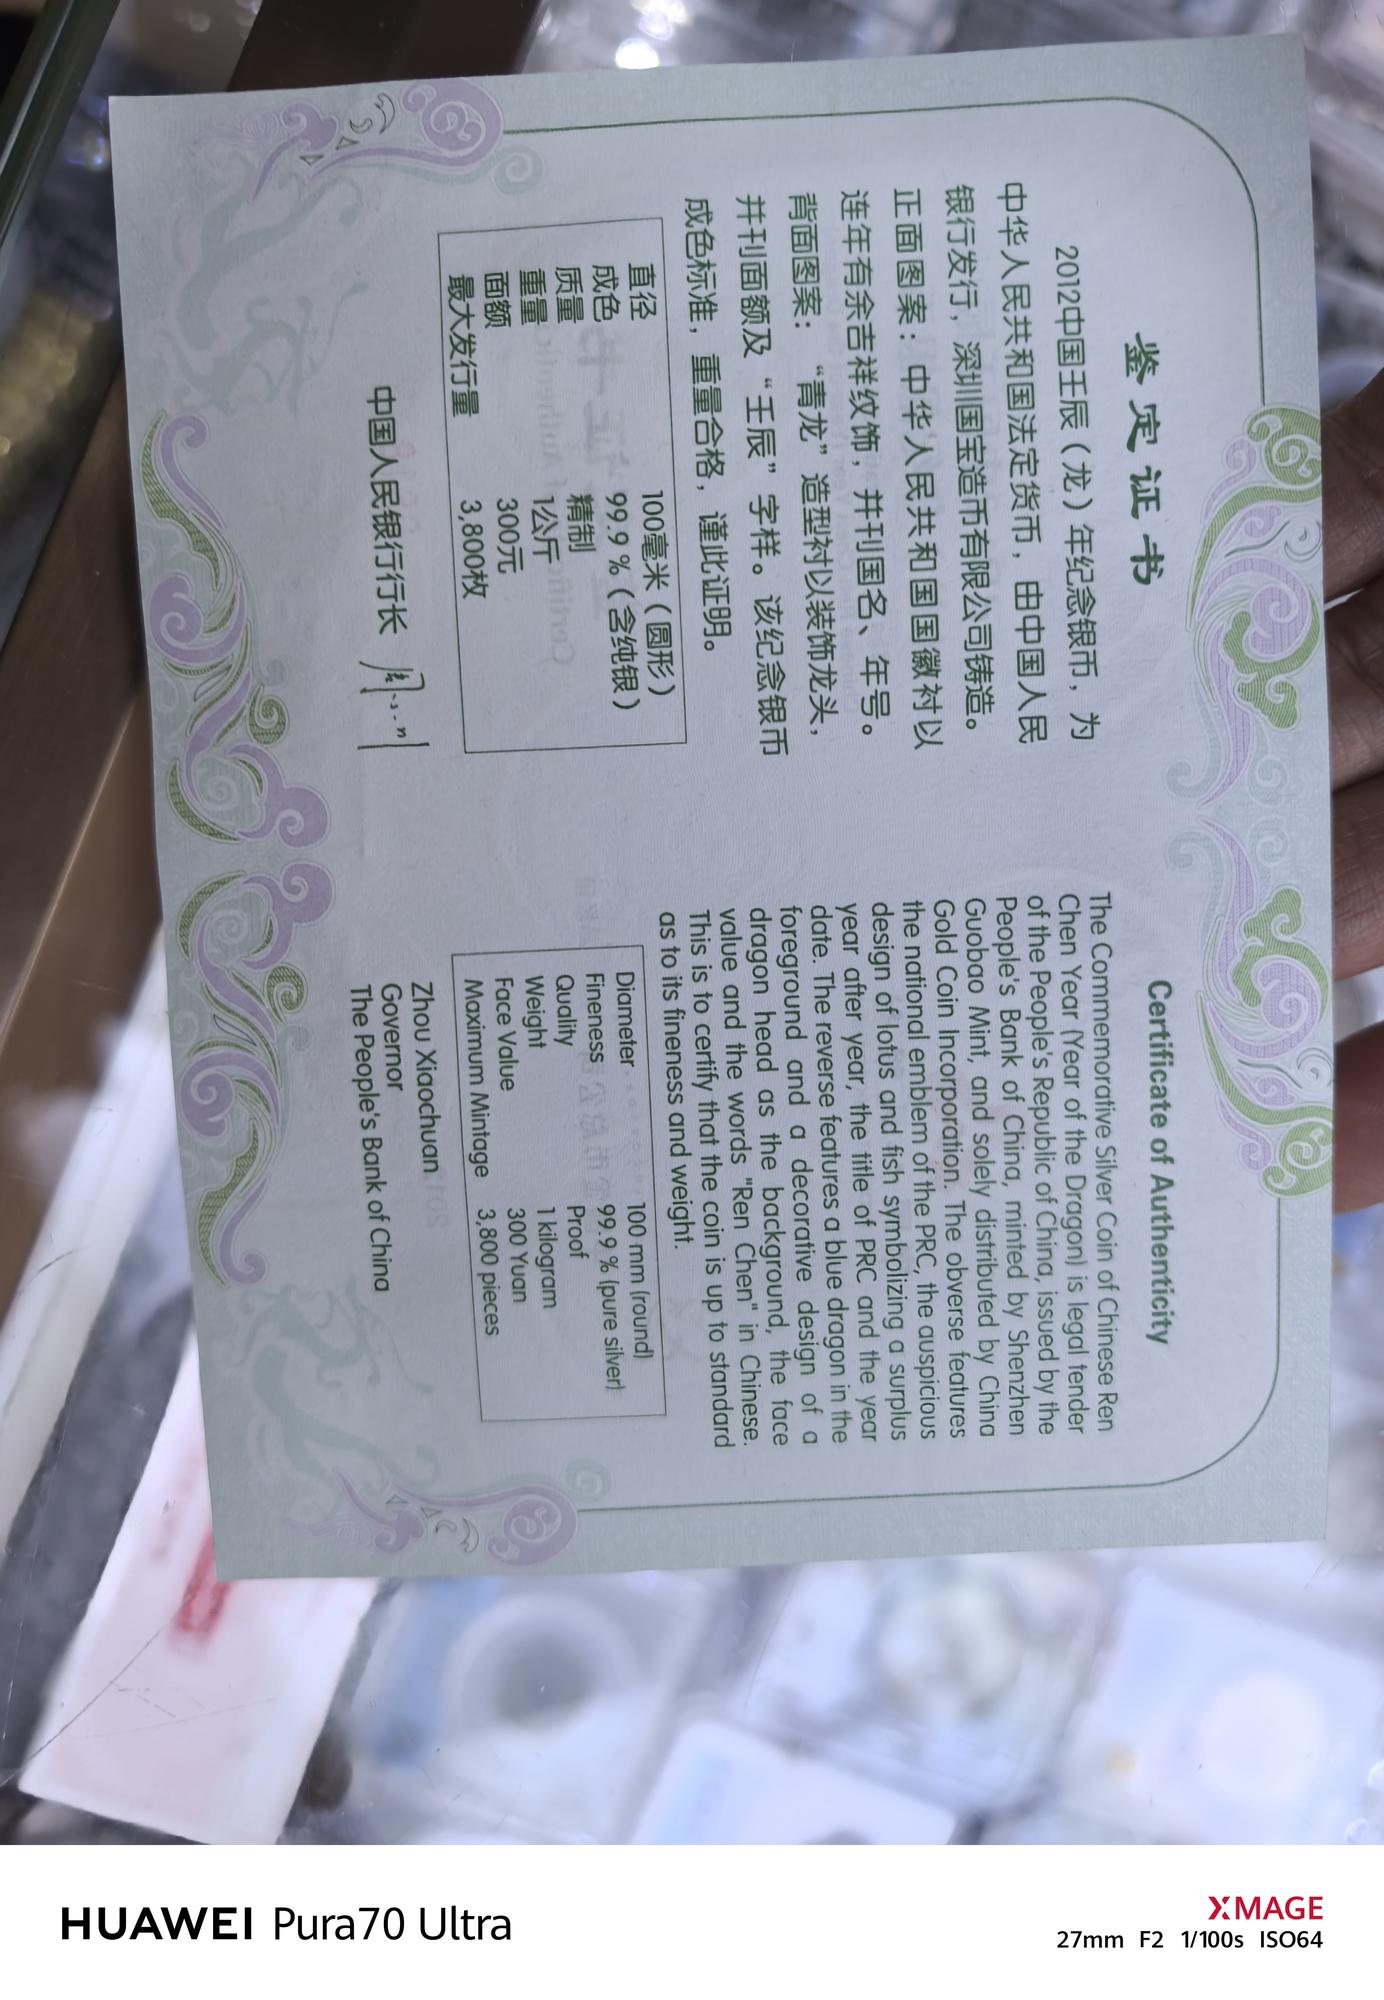 鉴定证书
2012中国壬辰（龙）年纪念银币，为
中华人民共和国法定货币，由中国人民
银行发行，深圳国宝造币有限公司铸造。
正面图案：中华人民共和国国徽衬以
连年有余吉祥纹饰，并刊国名、年号。
背面图案：“青龙”造型衬以装饰龙头，
并刊面额及“壬辰”字样。该纪念银币
成色标准，重量合格，谨此证明。
直径 100毫米（圆形）
成色 99.9％（含纯银）
质量 精制
重量 1公斤
面额 300元
最大发行量 3,800枚
中国人民银行行长
Certificate of Authenticity
The Commemorative Silver Coin of Chinese Ren
Chen Year (Year of the Dragon) is legal tender
of the People's Republic of China, issued by the
People's Bank of China, minted by Shenzhen
Guobao Mint, and solely distributed by China
Gold Coin Incorporation. The obverse features
the national emblem of the PRC, the auspicious
design of lotus and fish symbolizing a surplus
year after year, the title of PRC and the year
date. The reverse features a blue dragon in the
foreground and a decorative design of a
dragon head as the background, the face
value and the words "Ren Chen" in Chinese.
This is to certify that the coin is up to standard
as to its fineness and weight.
Diameter 100 mm (round)
Fineness 99.9 % (pure silver)
Quality Proof
Weight 1 kilogram
Face Value 300 Yuan
Maximum Mintage 3,800 pieces
Zhou Xiaochuan
Governor
The People's Bank of China
HUAWEI Pura70 Ultra
XMAGE
27mm F2 1/100s ISO64